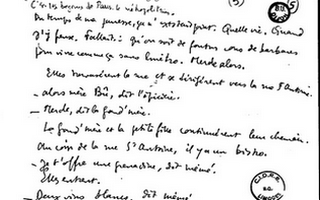 C'est les égouts de Paris, le métropolitain.
Du temps de ma jeunesse, ça n'existait point. Quelle vie. Quand
j'y pense. Fallait qu'on soit de foutus cons de barbares
pour vivre comme ça sans l'métro. Merde alors.
Elles traversèrent la rue et se dirigèrent vers la rue St Antoine.
- alors mère Bû, dit l'épicière.
- Merde, dit la grand'mère.
La grand'mère et la petite fille continuèrent leur chemin.
Au coin de la rue St Antoine, il y a un bistro.
- Je t'offre une grenadine, dit mémé.
Elles entrent.
- Deux vins blancs, dit mémé
(5)
(3)
C.I.D.R.E.
R.Q.
LIMOGES